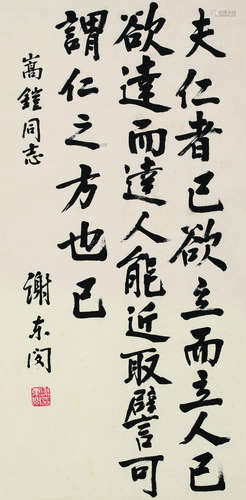 夫仁者己欲立而立人己
欲達而達人能近取譬可
謂仁之方也已
嵩鎧同志
謝东閔